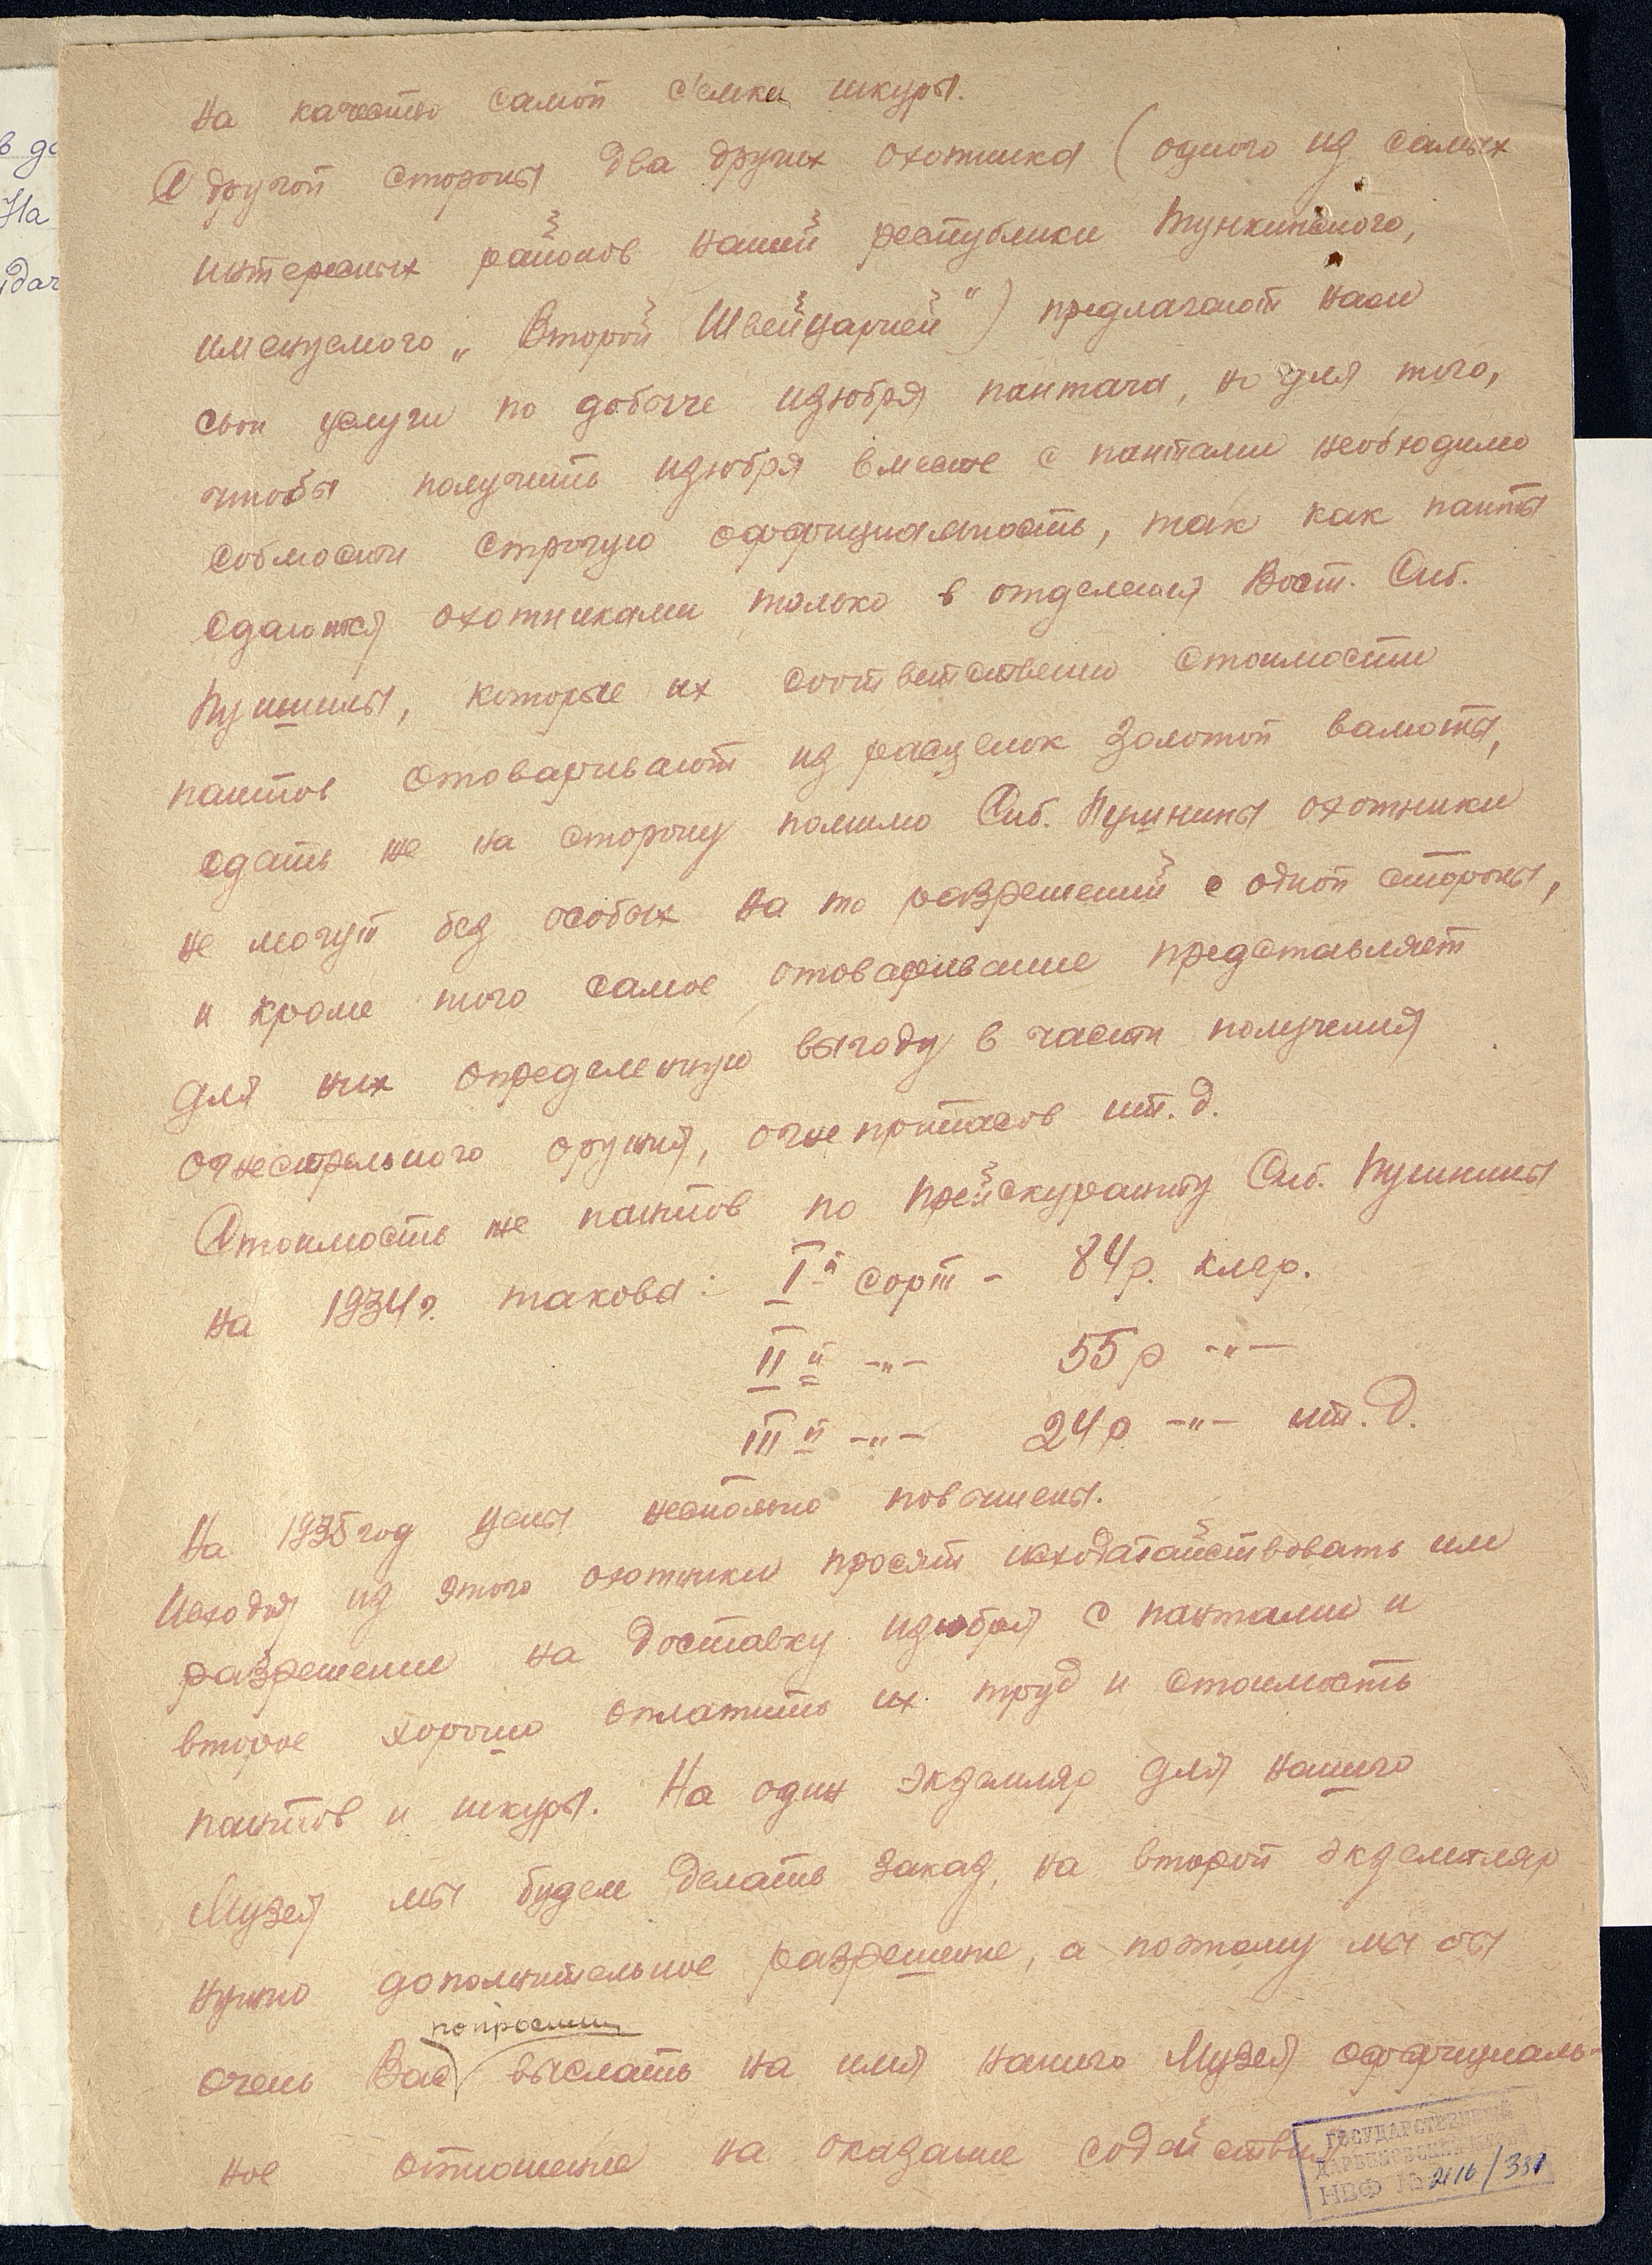 на качество самой с'емки шкуры.
С другой стороны два других охотника (одного из самых
интересных районов нашей республики Тункинского,
именуемого „Второй Швейцарией") предлагают нам
свои услуги по добыче изюбря пантача, но для того,
чтобы получить изюбря вместе с пантами необходимо
соблюсти строгую оффициальность, так как панты
сдаются охотниками только в отделения Вост. Сиб.
Пушнины, которые их соответственно стоимости
пантов отоваривают из расценок золотой валюты,
сдать же на сторону помимо Сиб. Пушнины охотники
не могут без особых на то разрешений с одной стороны,
и кроме того самое отоваривание представляет
для них определенную выгоду в части получения
огнестрельного оружия, огнеприпасов и т. д.
Стоимость же пантов по прейскуранту Сиб. Пушнины
на 1934г. такова: I й сорт - 84 р. клгр.
II й -"- 55 р -"-
III й -"- 24 р. -"- и т. д.
На 1935 год цены несколько повышены.
Исходя из этого охотники просят исходатайствовать им
разрешение на доставку изюбря с пантами и
второе хорошо оплатить их труд и стоимость
пантов и шкуры. На один экземпляр для нашего
Музея мы будем делать заказ, на второй экземпляр
нужно дополнительное разрешение, а поэтому мы бы
попросили
очень Вас выслать на имя нашего Музея оффициаль-
ное отношение на оказание содействия
ГОСУДАРСТВЕННЫЙ
ДАРВИНОВСКИЙ МУЗЕЙ
НВФ № 2116/381